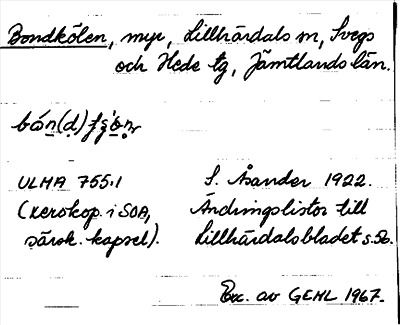 Bondkölen, myr, Lillhärdals sn, Svegs
och Hede tg, Jämtlands län.
bón(d)
ULMA 755:1 S. Åsander 1922.
(xerokop. i SOA, Ändringslistor till
särsk. kapsel). Lillhärdalsbladet s. 56.
Exc. av GEHL 1967.